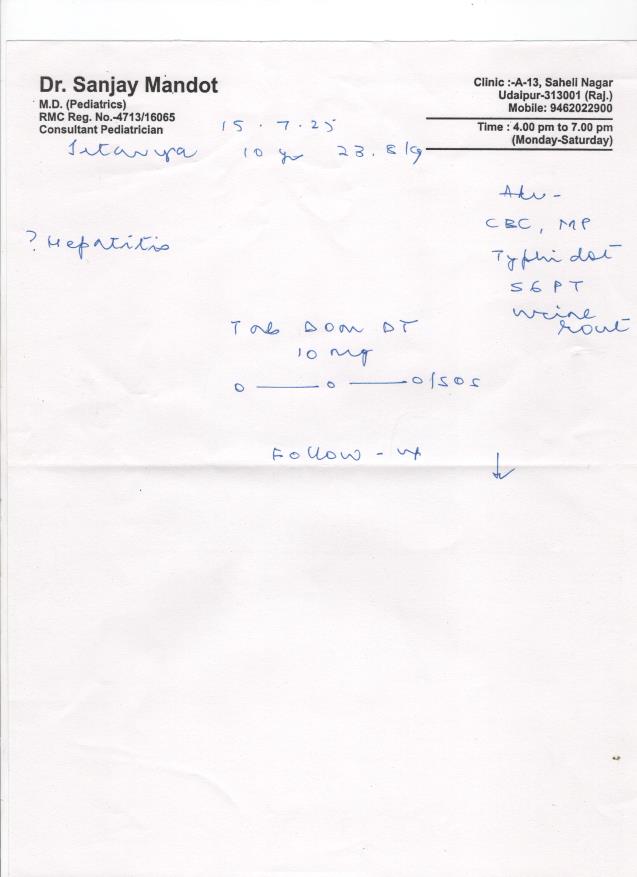 Dr. Sanjay Mandot
M.D. (Pediatrics)
RMC Reg. No.-4713/16065
Consultant Pediatrician
Clinic :-A-13, Saheli Nagar
Udaipur-313001 (Raj.)
Mobile: 9462022900
Time : 4.00 pm to 7.00 pm
(Monday-Saturday)
15.7.25
10 yr 23.8 kg
? Hepatitis
CBC, MP
Typhi dot
SGPT
urine
rout
Tab DOM DT
10 mg
0 — 0 — 0/SOS
Follow-up